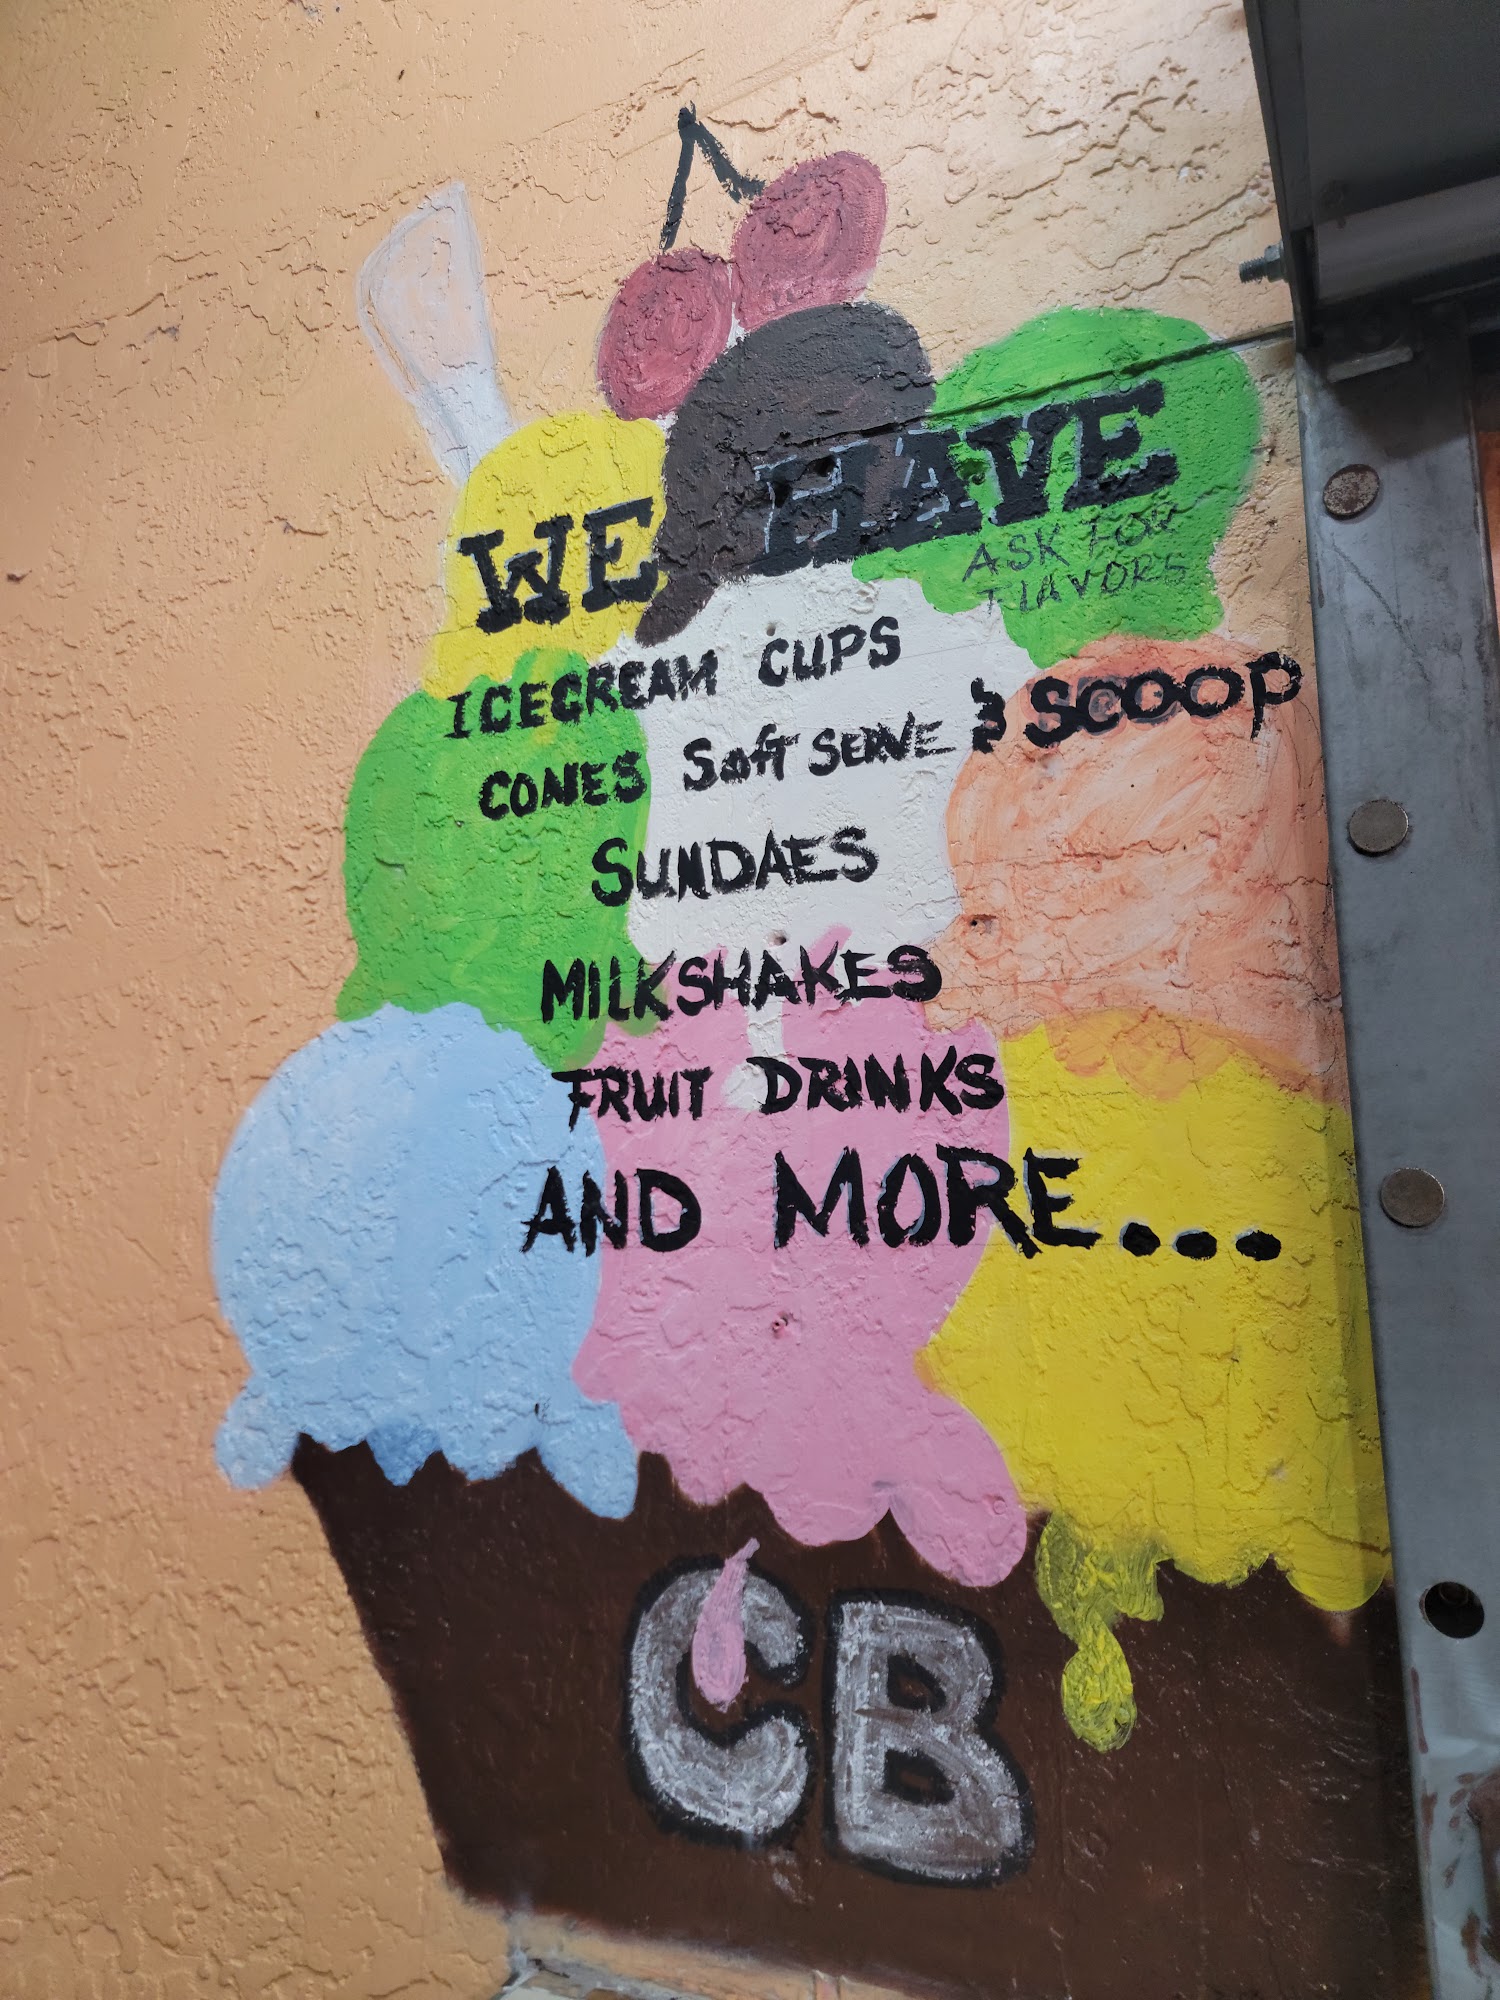 WE HAVE
ASK FOR
FLAVORS
ICECREAM CUPS
CONES Soft SERVE & SCOOP
SUNDAES
MILKSHAKES
FRUIT DRINKS
AND MORE...
CB